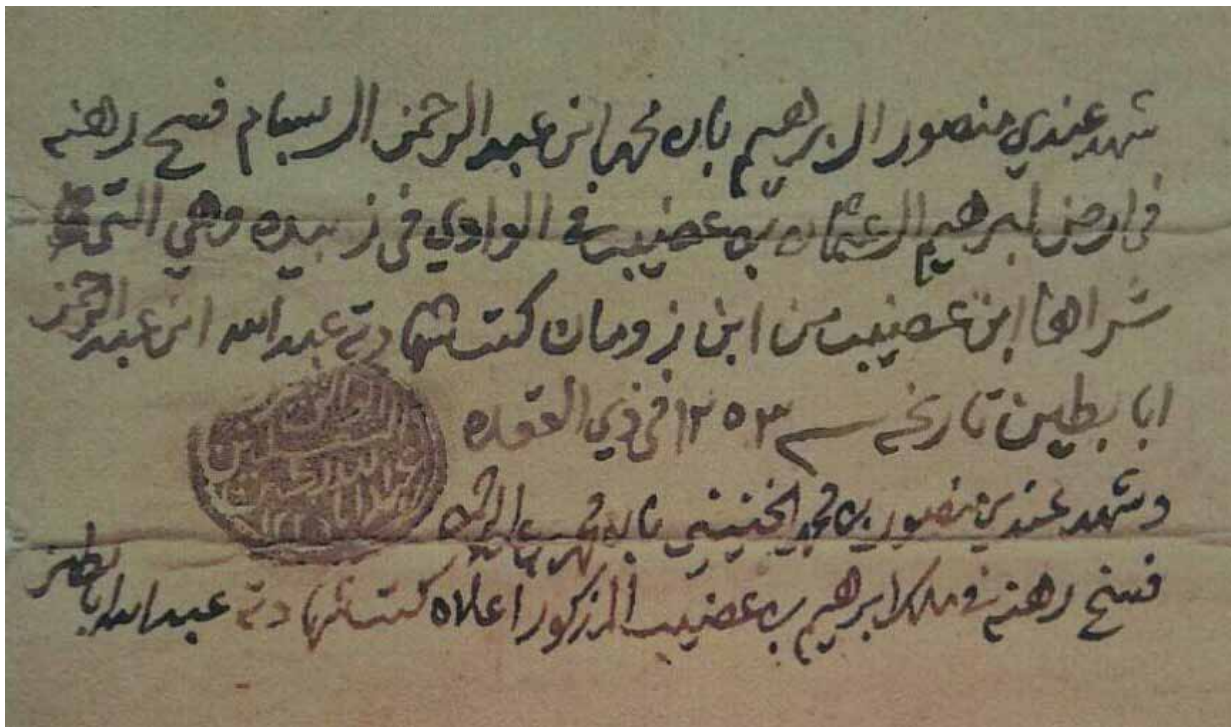 شهد عندي منصور ال ابرهيم بان محمد ابن عبد الرحمن البسام فسح رهنه
في ارض ابرهيم العثمان بن عضيب في الوادي في زبيده وهي التي
شراها ابن عضيب من ابن زومان كتب شهادته عبد الله ابن عبد الرحمن
ابا بطين تاريخه سنه ١٢٥٣ في ذي القعده
وشهد عندي منصور بن محمد الخنيني بان محمد
فسخ رهنه في ملك ابرهيم بن عضيب المذكور اعلاه كتب شهادته عبد الله ابا بطين